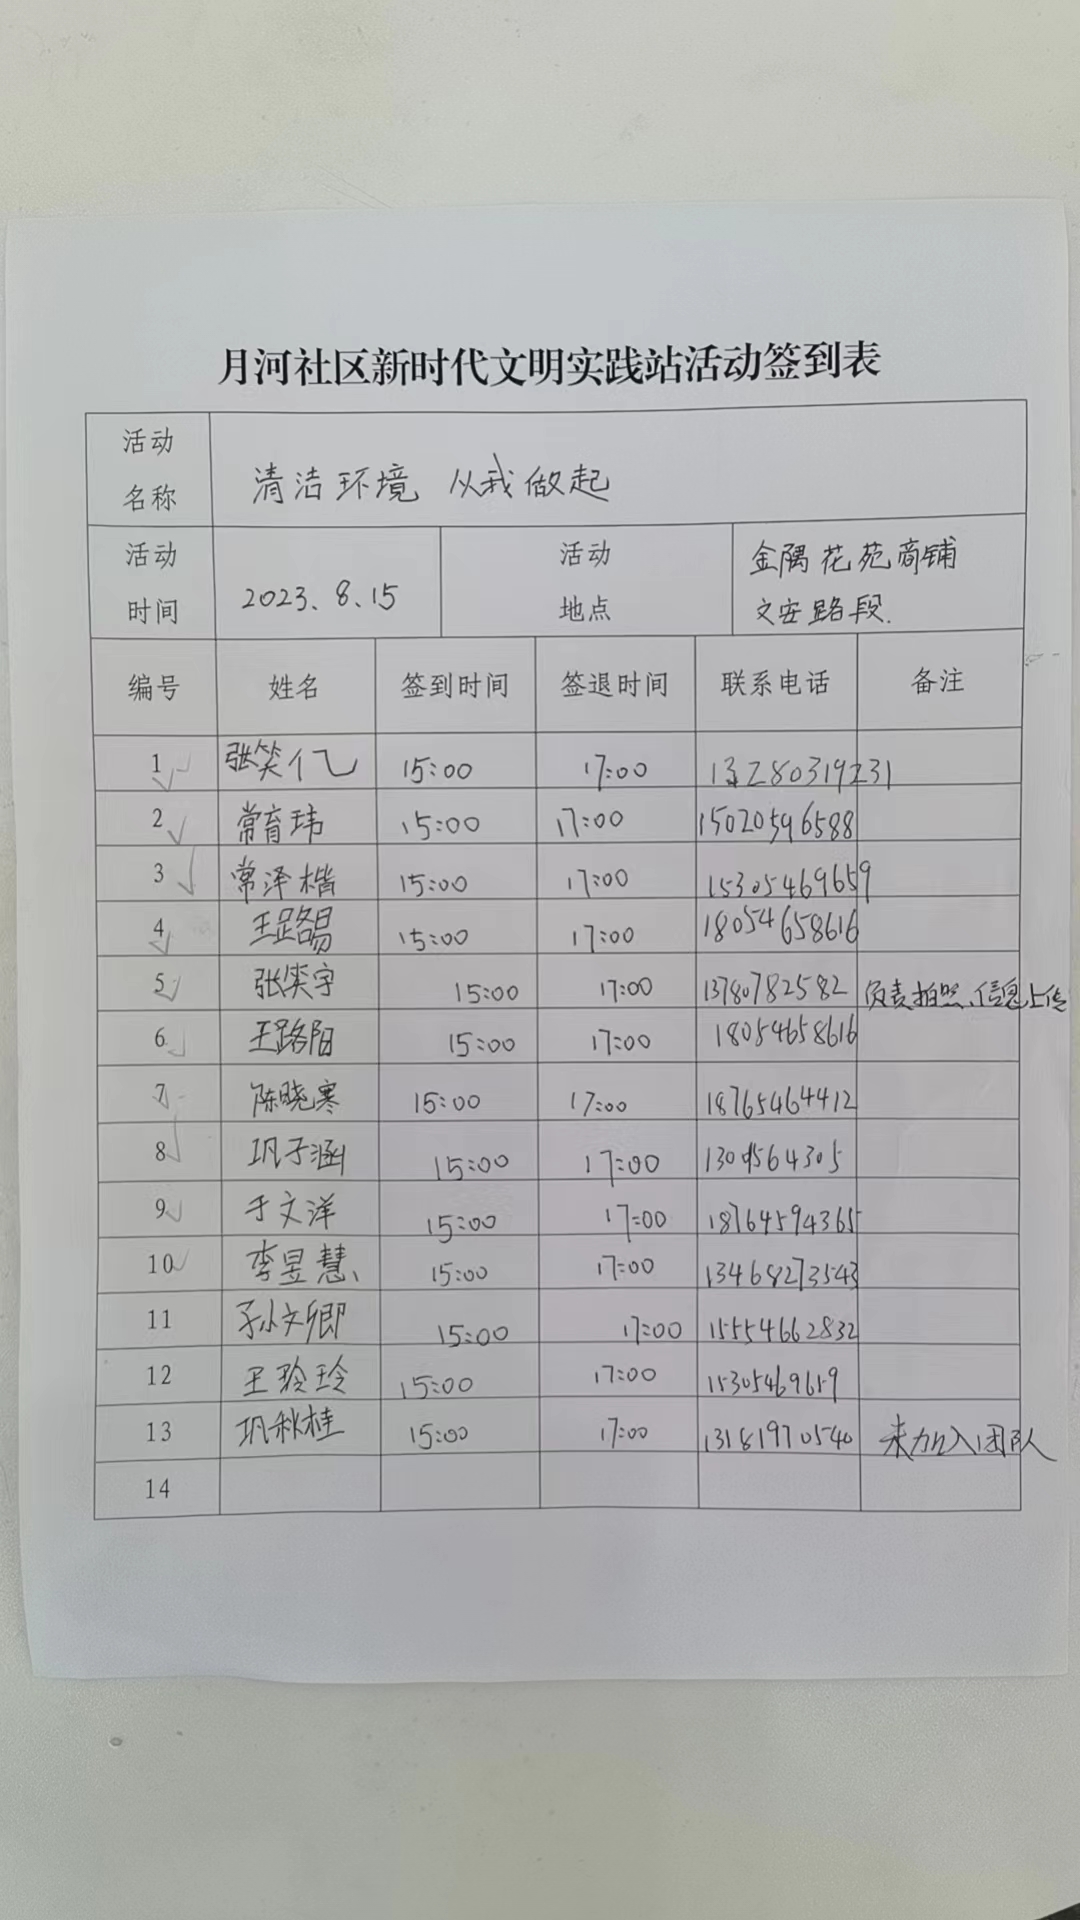 月河社区新时代文明实践站活动签到表
活动名称 清洁环境 从我做起
活动时间 2023.8.15 活动地点 金隅花苑商铺文安路段.
编号 姓名 签到时间 签退时间 联系电话 备注
1 张笑亿 15:00 17:00 13280319231
2 常育玮 15:00 17:00 15020596588
3 常泽楷 15:00 17:00 15305469659
4 王路易 15:00 17:00 18054658616
5 张笑宇 15:00 17:00 13780782582 负责拍照、信息上传
6 王路阳 15:00 17:00 18054658616
7 陈晓寒 15:00 17:00 18765464412
8 巩子涵 15:00 17:00
9 于文洋 15:00 17:00 18764594365
10 李昱慧 15:00 17:00 13468273543
11 孙文卿 15:00 17:00 15554662832
12 王玲玲 15:00 17:00 15305469659
13 巩秋桂 15:00 17:00 13181970540 未加入团队
14